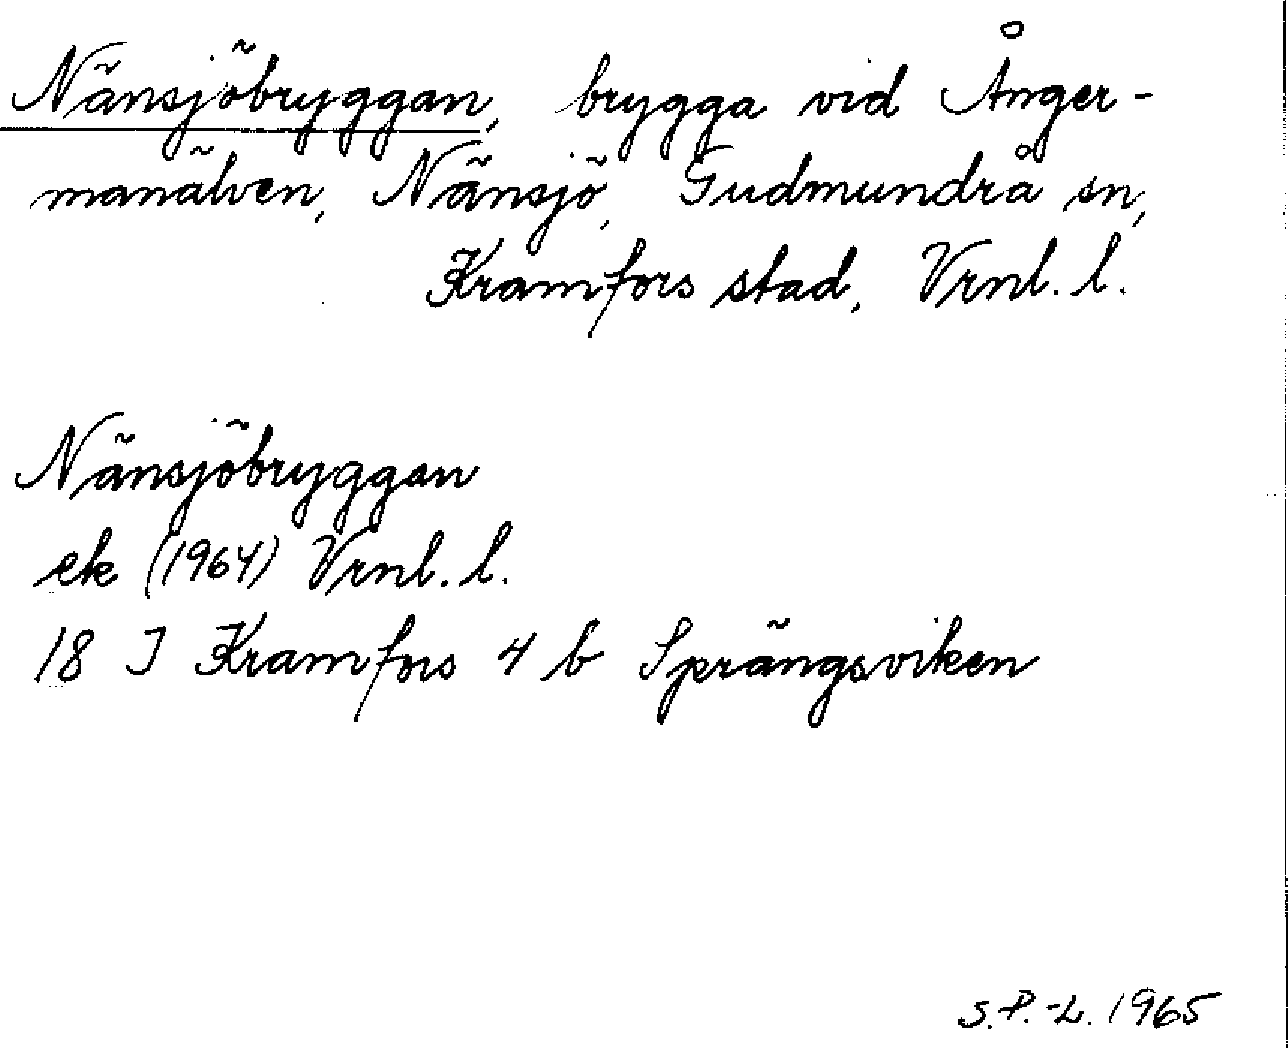 Nänsjöbryggan, brygga vid Ånger-
manälven, Nänsjö, Gudmundrå sn,
Kramfors stad, Vrnl. l.
Nänsjöbryggan
ek (1964) Vrnl. l.
18 I Kramfors 4 b Sprängsviken
S.P.-L. 1965